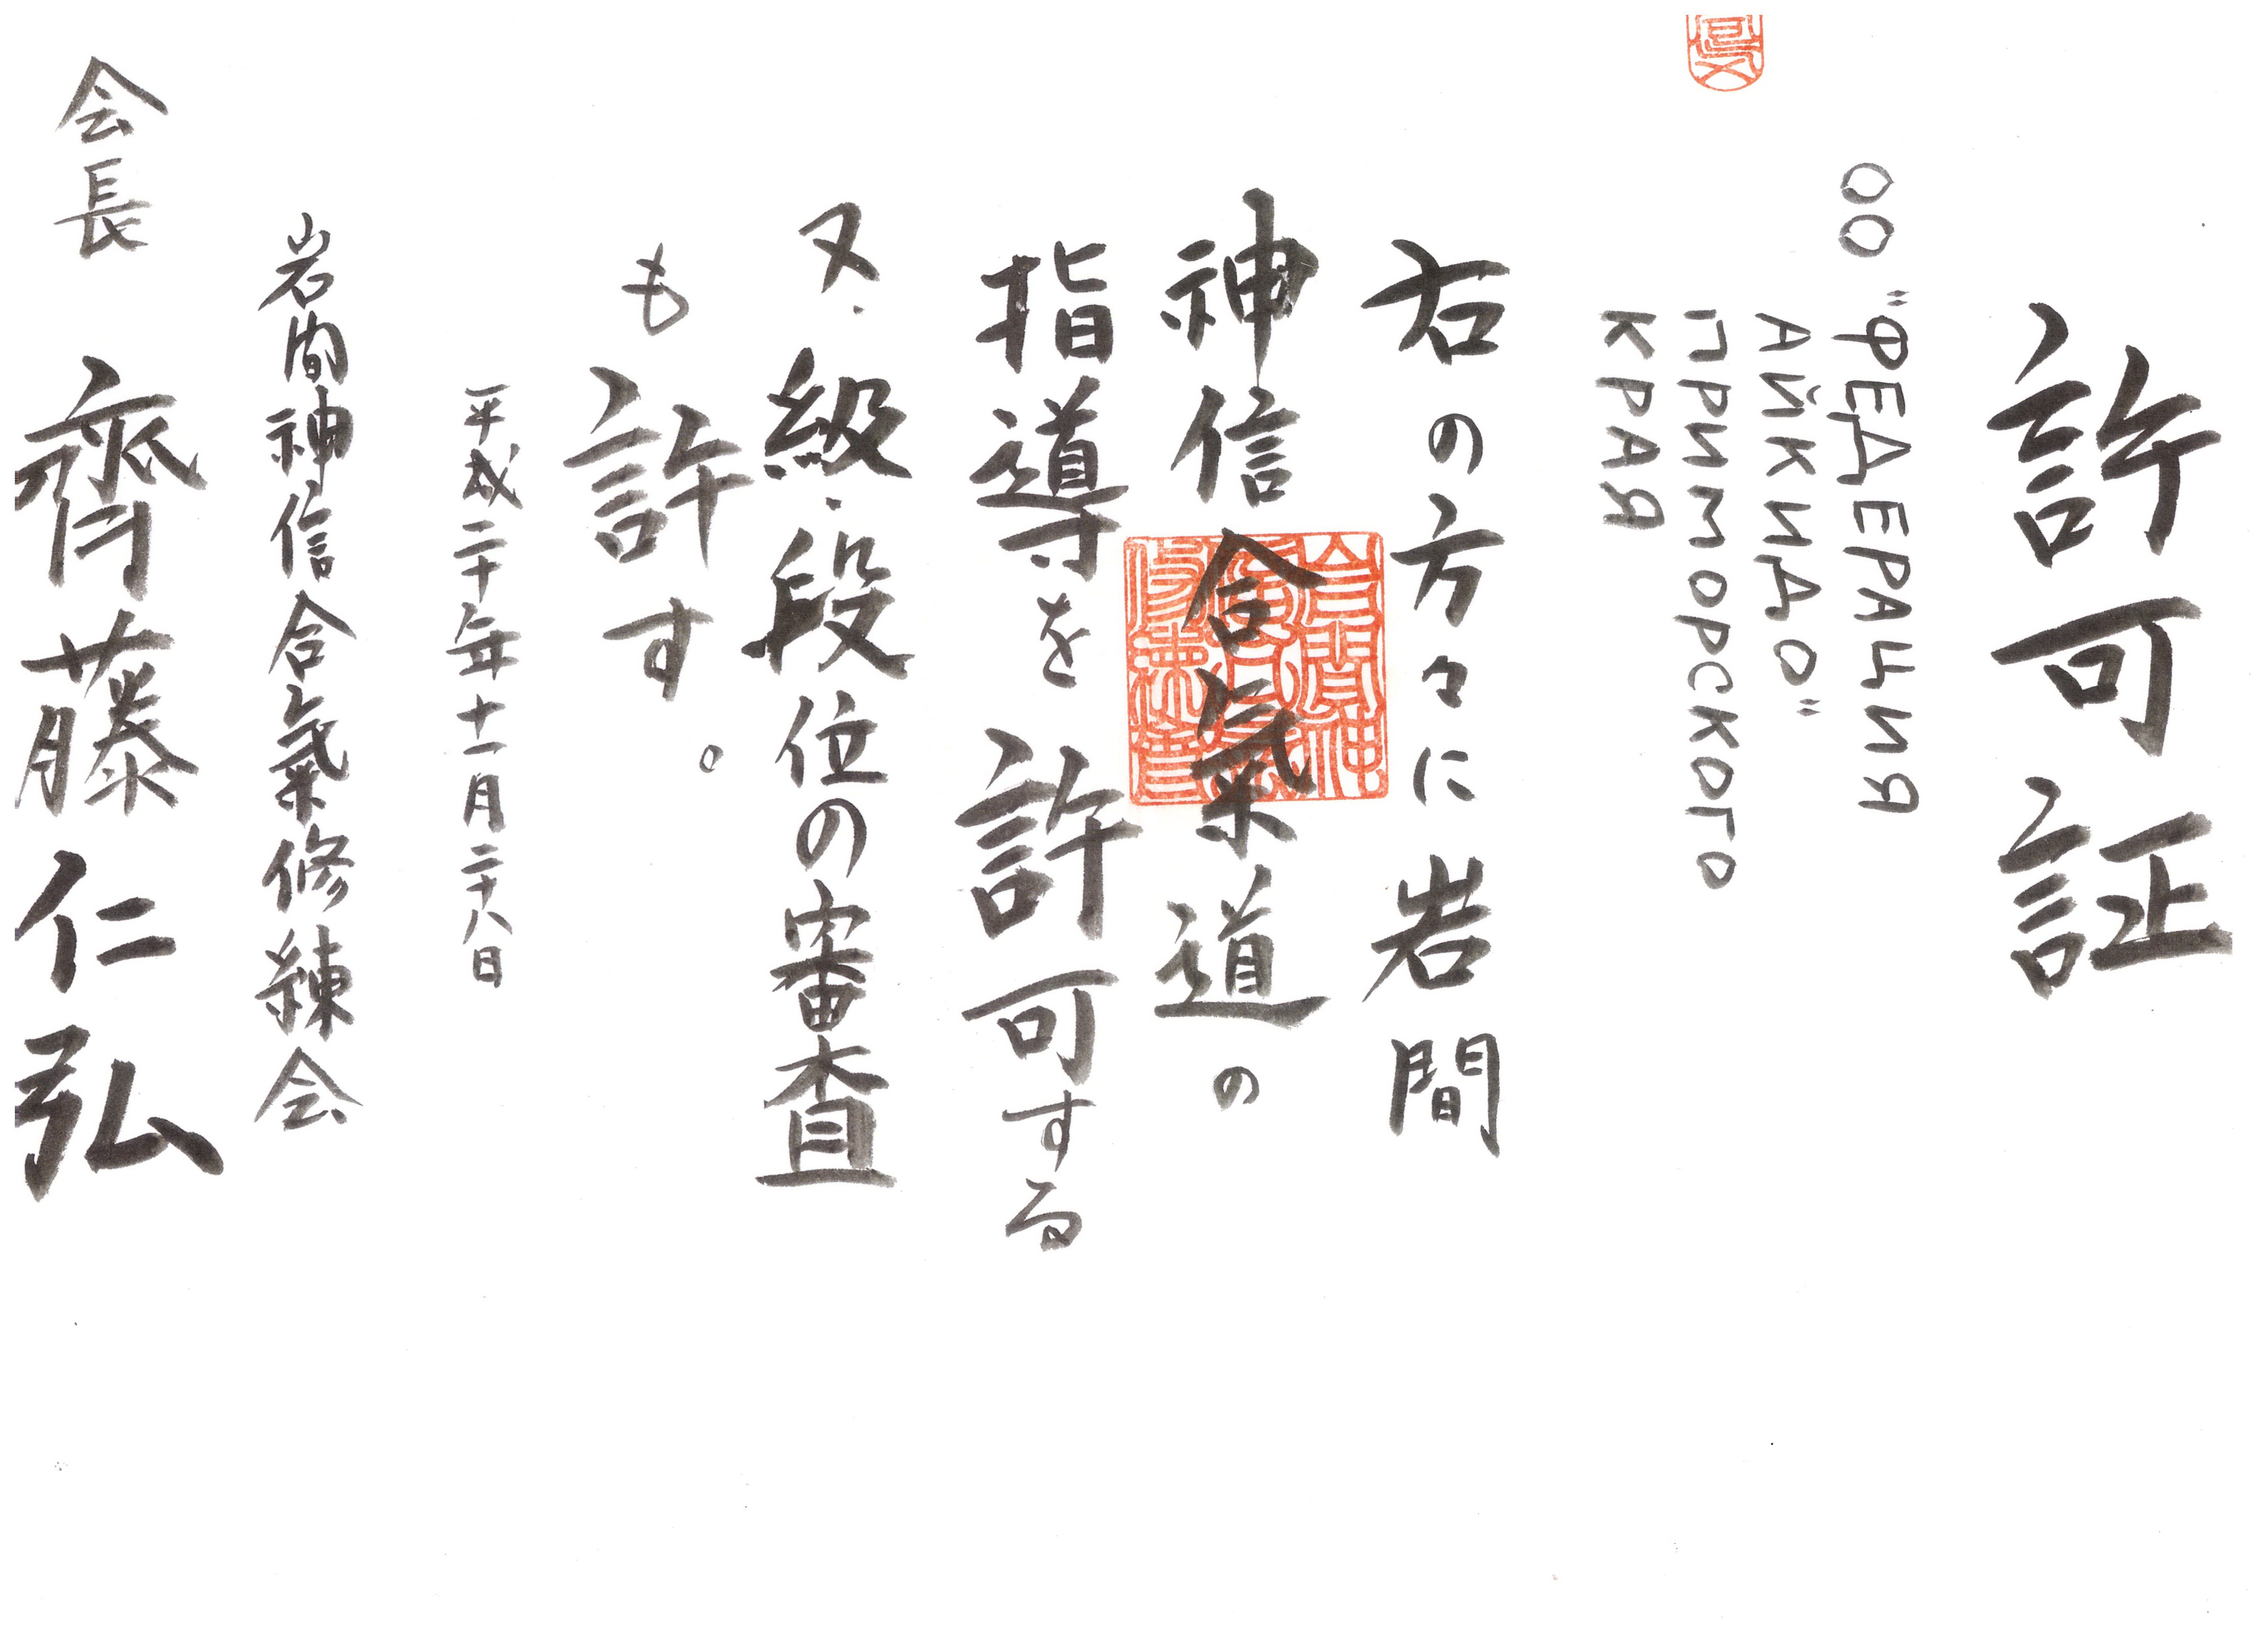 許可証
ОО "ФЕДЕРАЦИЯ
АЙКИДО"
ПРИМОРСКОГО
КРАЯ
右の方々に岩間
神信合氣道の
指導を許可する
又、級、段位の審査
も許す。
平成二十年十一月二十八日
岩间神信合氣修練会
会長 齊藤仁弘